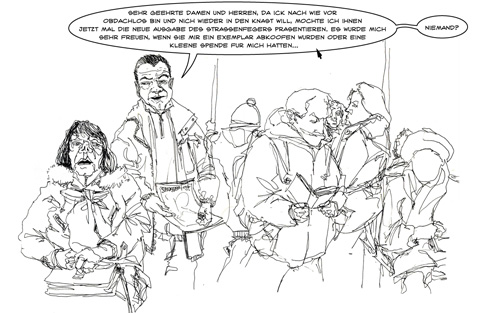 SEHR GEEHRTE DAMEN UND HERREN, DA ICK NACH WIE VOR
OBDACHLOS BIN UND NICH WIEDER IN DEN KNAST WILL, MÖCHTE ICH IHNEN
JETZT MAL DIE NEUE AUSGABE DES STRASSENFEGERS PRÄSENTIEREN, ES WÜRDE MICH
SEHR FREUEN, WENN SIE MIR EIN EXEMPLAR ABKOOFEN WÜRDEN ODER EINE
KLEENE SPENDE FÜR MICH HÄTTEN...
NIEMAND?